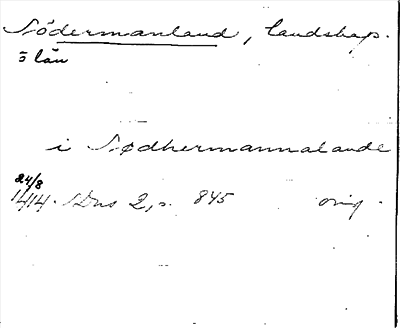 Södermanland, landskap.
o län
i Sødhermannalande
24/8
1414. SDns 2, s. 845 orig.